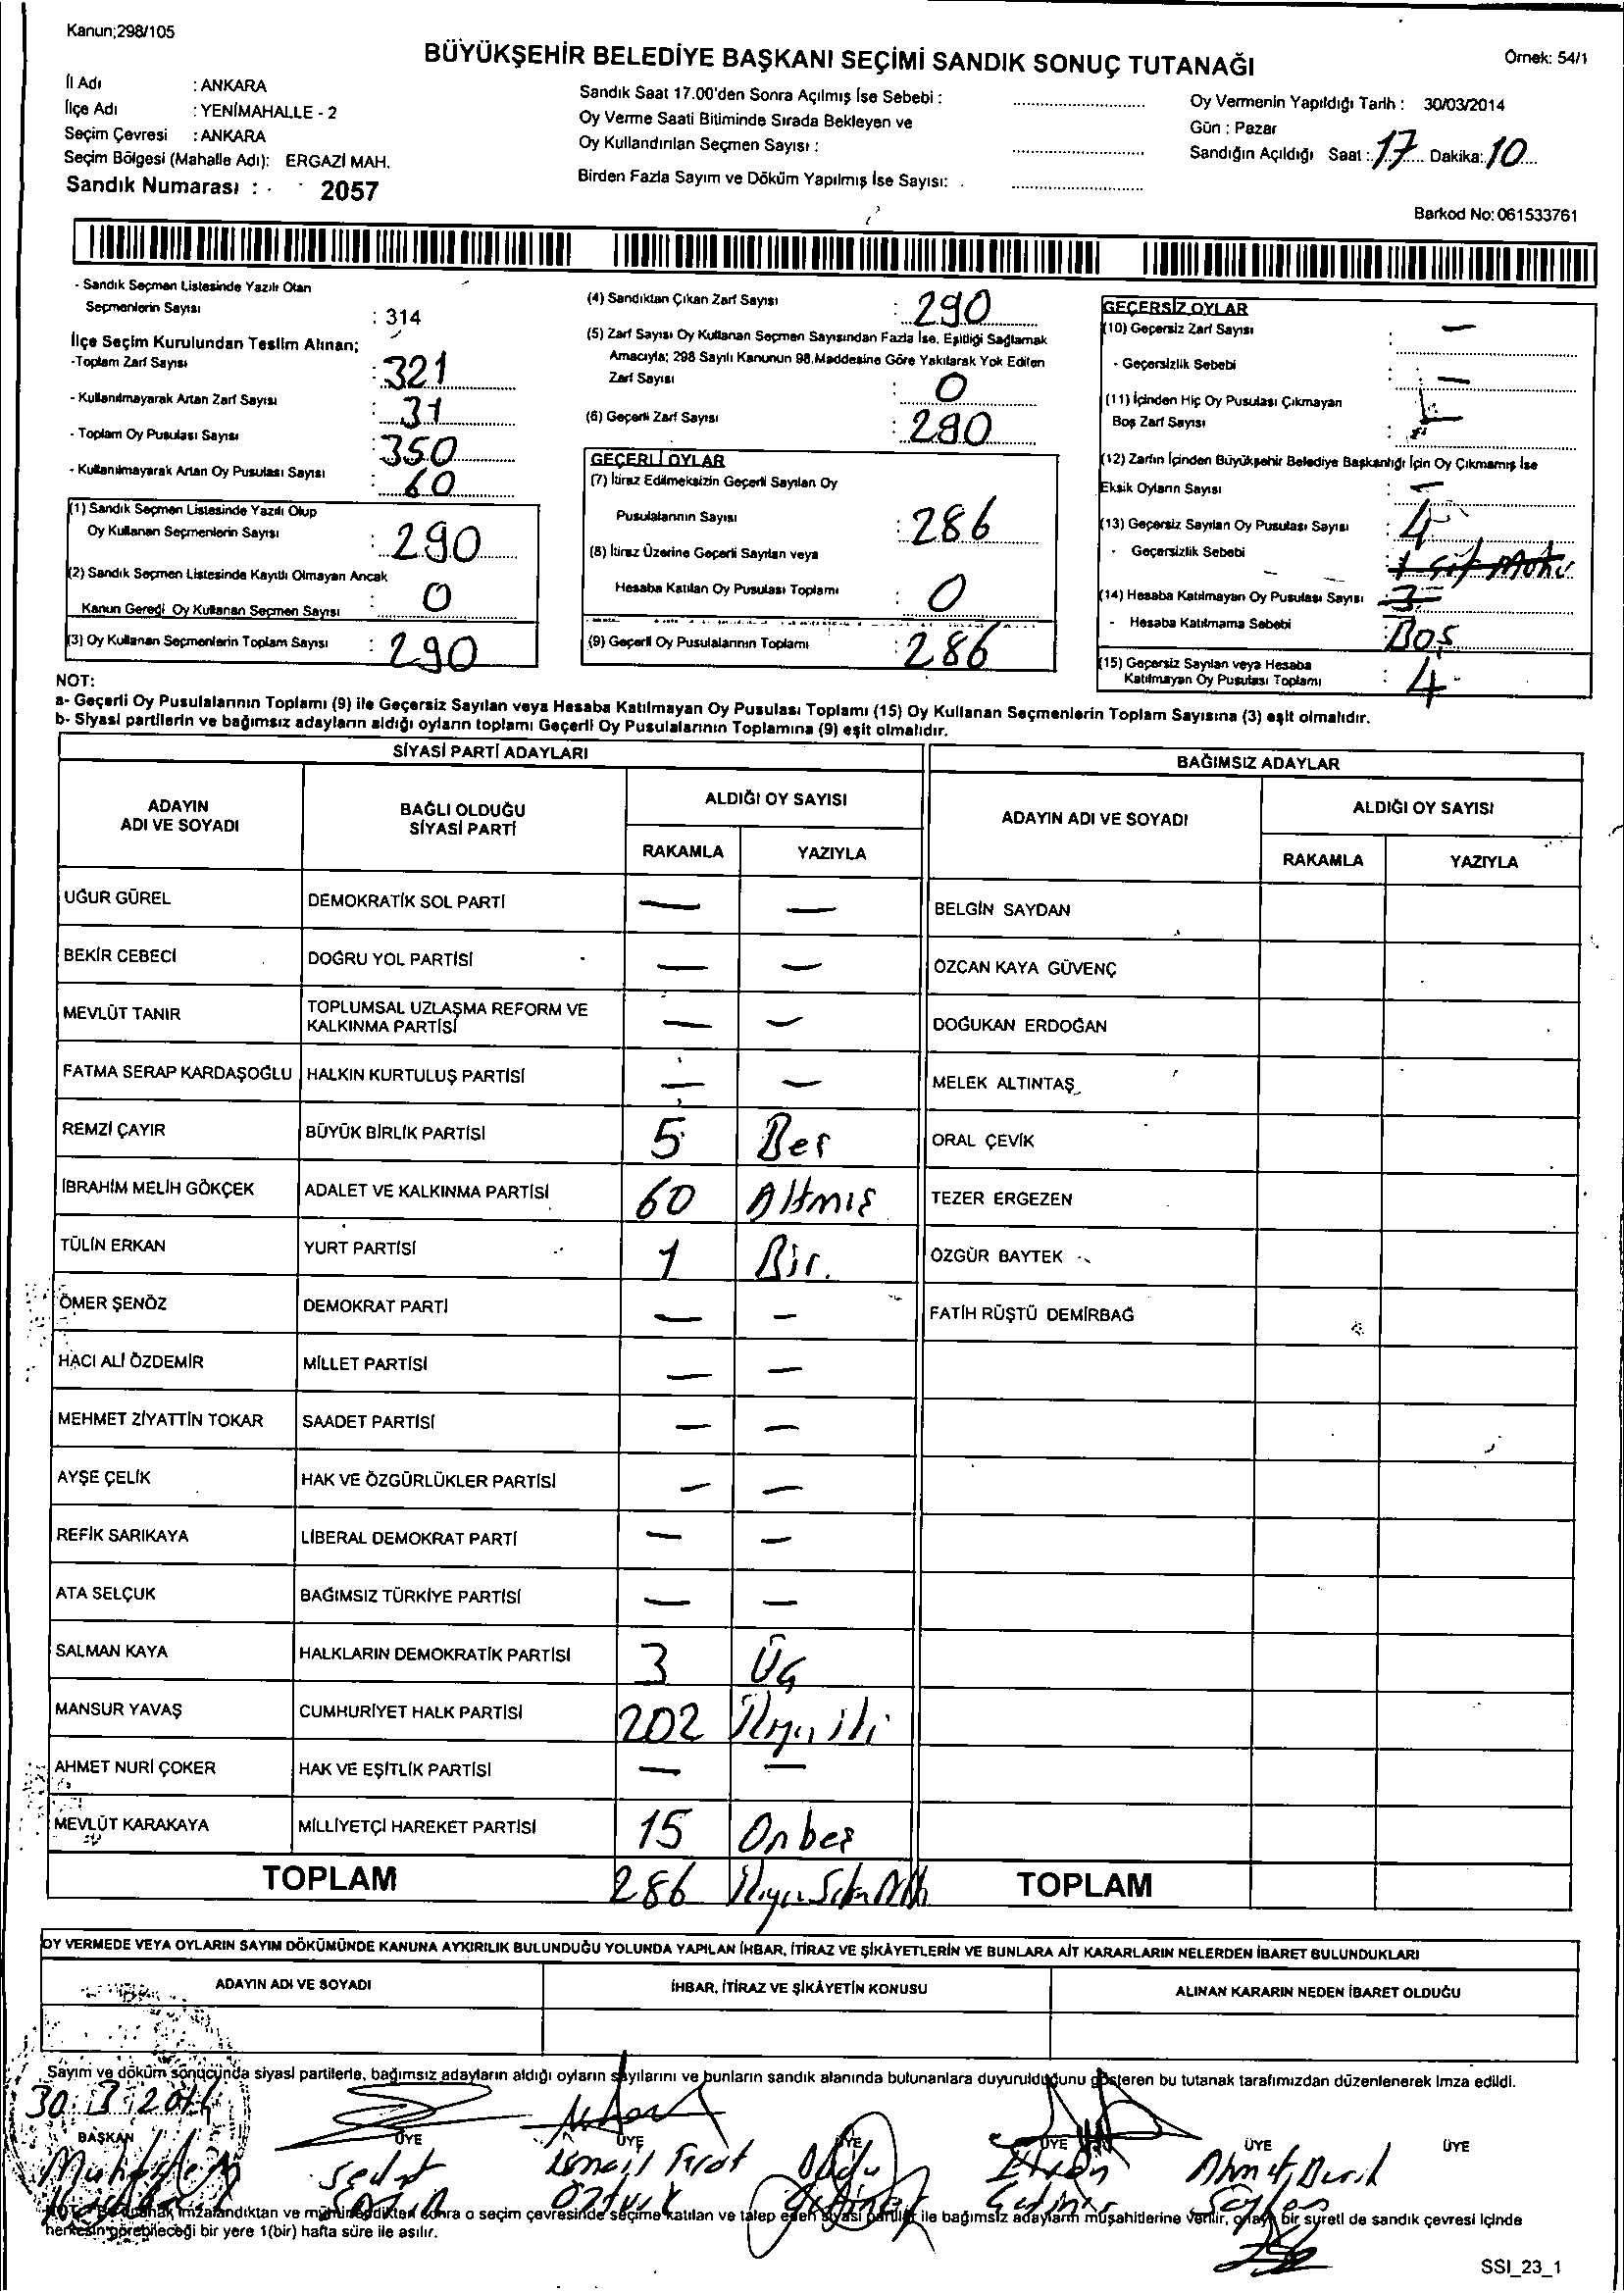 Kanun;298/105
BÜYÜKŞEHİR BELEDİYE BAŞKANI SEÇİMİ SANDIK SONUÇ TUTANAĞI
Örnek: 54/1
İl Adı : ANKARA
İlçe Adı : YENİMAHALLE - 2
Seçim Çevresi : ANKARA
Seçim Bölgesi (Mahalle Adı): ERGAZİ MAH.
Sandık Numarası : 2057
Sandık Saat 17.00'den Sonra Açılmış İse Sebebi :
Oy Verme Saati Bitiminde Sırada Bekleyen ve
Oy Kullandırılan Seçmen Sayısı :
Birden Fazla Sayım ve Döküm Yapılmış İse Sayısı:
Oy Vermenin Yapıldığı Tarih : 30/03/2014
Gün : Pazar
Sandığın Açıldığı Saat : 17 Dakika: 10
Barkod No: 061533761
- Sandık Seçmen Listesinde Yazılı Olan
Seçmenlerin Sayısı : 314
İlçe Seçim Kurulundan Teslim Alınan;
-Toplam Zarf Sayısı : 321
- Kullanılmayarak Artan Zarf Sayısı : 31
- Toplam Oy Pusulası Sayısı : 350
- Kullanılmayarak Artan Oy Pusulası Sayısı : 60
(1) Sandık Seçmen Listesinde Yazılı Olup
Oy Kullanan Seçmenlerin Sayısı : 290
(2) Sandık Seçmen Listesinde Kayıtlı Olmayan Ancak
Kanun Gereği Oy Kullanan Seçmen Sayısı : 0
(3) Oy Kullanan Seçmenlerin Toplam Sayısı : 290
(4) Sandıktan Çıkan Zarf Sayısı : 290
(5) Zarf Sayısı Oy Kullanan Seçmen Sayısından Fazla İse, Eşitliği Sağlamak
Amacıyla; 298 Sayılı Kanunun 98.Maddesine Göre Yakılarak Yok Edilen
Zarf Sayısı : 0
(6) Geçerli Zarf Sayısı : 290
GEÇERLİ OYLAR
(7) İtiraz Edilmeksizin Geçerli Sayılan Oy
Pusulalarının Sayısı : 286
(8) İtiraz Üzerine Geçerli Sayılan veya
Hesaba Katılan Oy Pusulası Toplamı : 0
(9) Geçerli Oy Pusulalarının Toplamı : 286
GEÇERSİZ OYLAR
(10) Geçersiz Zarf Sayısı : —
- Geçersizlik Sebebi : —
(11) İçinden Hiç Oy Pusulası Çıkmayan
Boş Zarf Sayısı :
(12) Zarfın İçinden Büyükşehir Belediye Başkanlığı İçin Oy Çıkmamış İse
Eksik Oyların Sayısı : —
(13) Geçersiz Sayılan Oy Pusulası Sayısı : 4
- Geçersizlik Sebebi
(14) Hesaba Katılmayan Oy Pusulası Sayısı 3
- Hesaba Katılmama Sebebi : Boş
(15) Geçersiz Sayılan veya Hesaba
Katılmayan Oy Pusulası Toplamı : 4
NOT:
a- Geçerli Oy Pusulalarının Toplamı (9) ile Geçersiz Sayılan veya Hesaba Katılmayan Oy Pusulası Toplamı (15) Oy Kullanan Seçmenlerin Toplam Sayısına (3) eşit olmalıdır.
b- Siyasi partilerin ve bağımsız adayların aldığı oyların toplamı Geçerli Oy Pusulalarının Toplamına (9) eşit olmalıdır.
SİYASİ PARTİ ADAYLARI BAĞIMSIZ ADAYLAR
ADAYIN ADI VE SOYADI BAĞLI OLDUĞU SİYASİ PARTİ ALDIĞI OY SAYISI ADAYIN ADI VE SOYADI ALDIĞI OY SAYISI
RAKAMLA YAZIYLA RAKAMLA YAZIYLA
UĞUR GÜREL DEMOKRATİK SOL PARTİ — — BELGİN SAYDAN
BEKİR CEBECİ DOĞRU YOL PARTİSİ — — ÖZCAN KAYA GÜVENÇ
MEVLÜT TANIR TOPLUMSAL UZLAŞMA REFORM VE KALKINMA PARTİSİ — — DOĞUKAN ERDOĞAN
FATMA SERAP KARDAŞOĞLU HALKIN KURTULUŞ PARTİSİ — — MELEK ALTINTAŞ
REMZİ ÇAYIR BÜYÜK BİRLİK PARTİSİ 5 Beş ORAL ÇEVİK
İBRAHİM MELİH GÖKÇEK ADALET VE KALKINMA PARTİSİ 60 Altmış TEZER ERGEZEN
TÜLİN ERKAN YURT PARTİSİ 1 Bir. ÖZGÜR BAYTEK
ÖMER ŞENÖZ DEMOKRAT PARTİ — — FATİH RÜŞTÜ DEMİRBAĞ
HACI ALİ ÖZDEMİR MİLLET PARTİSİ — —
MEHMET ZİYATTİN TOKAR SAADET PARTİSİ — —
AYŞE ÇELİK HAK VE ÖZGÜRLÜKLER PARTİSİ — —
REFİK SARIKAYA LİBERAL DEMOKRAT PARTİ — —
ATA SELÇUK BAĞIMSIZ TÜRKİYE PARTİSİ — —
SALMAN KAYA HALKLARIN DEMOKRATİK PARTİSİ 3 Üç
MANSUR YAVAŞ CUMHURİYET HALK PARTİSİ 202
AHMET NURİ ÇOKER HAK VE EŞİTLİK PARTİSİ — —
MEVLÜT KARAKAYA MİLLİYETÇİ HAREKET PARTİSİ 15 Onbeş
TOPLAM 286 TOPLAM
OY VERMEDE VEYA OYLARIN SAYIM DÖKÜMÜNDE KANUNA AYKIRILIK BULUNDUĞU YOLUNDA YAPILAN İHBAR, İTİRAZ VE ŞİKÂYETLERİN VE BUNLARA AİT KARARLARIN NELERDEN İBARET BULUNDUKLARI
ADAYIN ADI VE SOYADI İHBAR, İTİRAZ VE ŞİKÂYETİN KONUSU ALINAN KARARIN NEDEN İBARET OLDUĞU
Sayım ve döküm sonucunda siyasi partilerle, bağımsız adayların aldığı oyların sayılarını ve bunların sandık alanında bulunanlara duyurulduğunu gösteren bu tutanak tarafımızdan düzenlenerek imza edildi.
30.3.2014
BAŞKAN ÜYE ÜYE ÜYE ÜYE ÜYE ÜYE
Sedat İsmail Fırat Ahmet
Öztürk
imzalandıktan ve mühürlendikten sonra o seçim çevresinde seçime katılan ve talep eden siyasi partiler ile bağımsız adayların müşahitlerine verilir, onaylı bir sureti de sandık çevresi içinde
herkesin görebileceği bir yere 1(bir) hafta süre ile asılır.
SSI_23_1